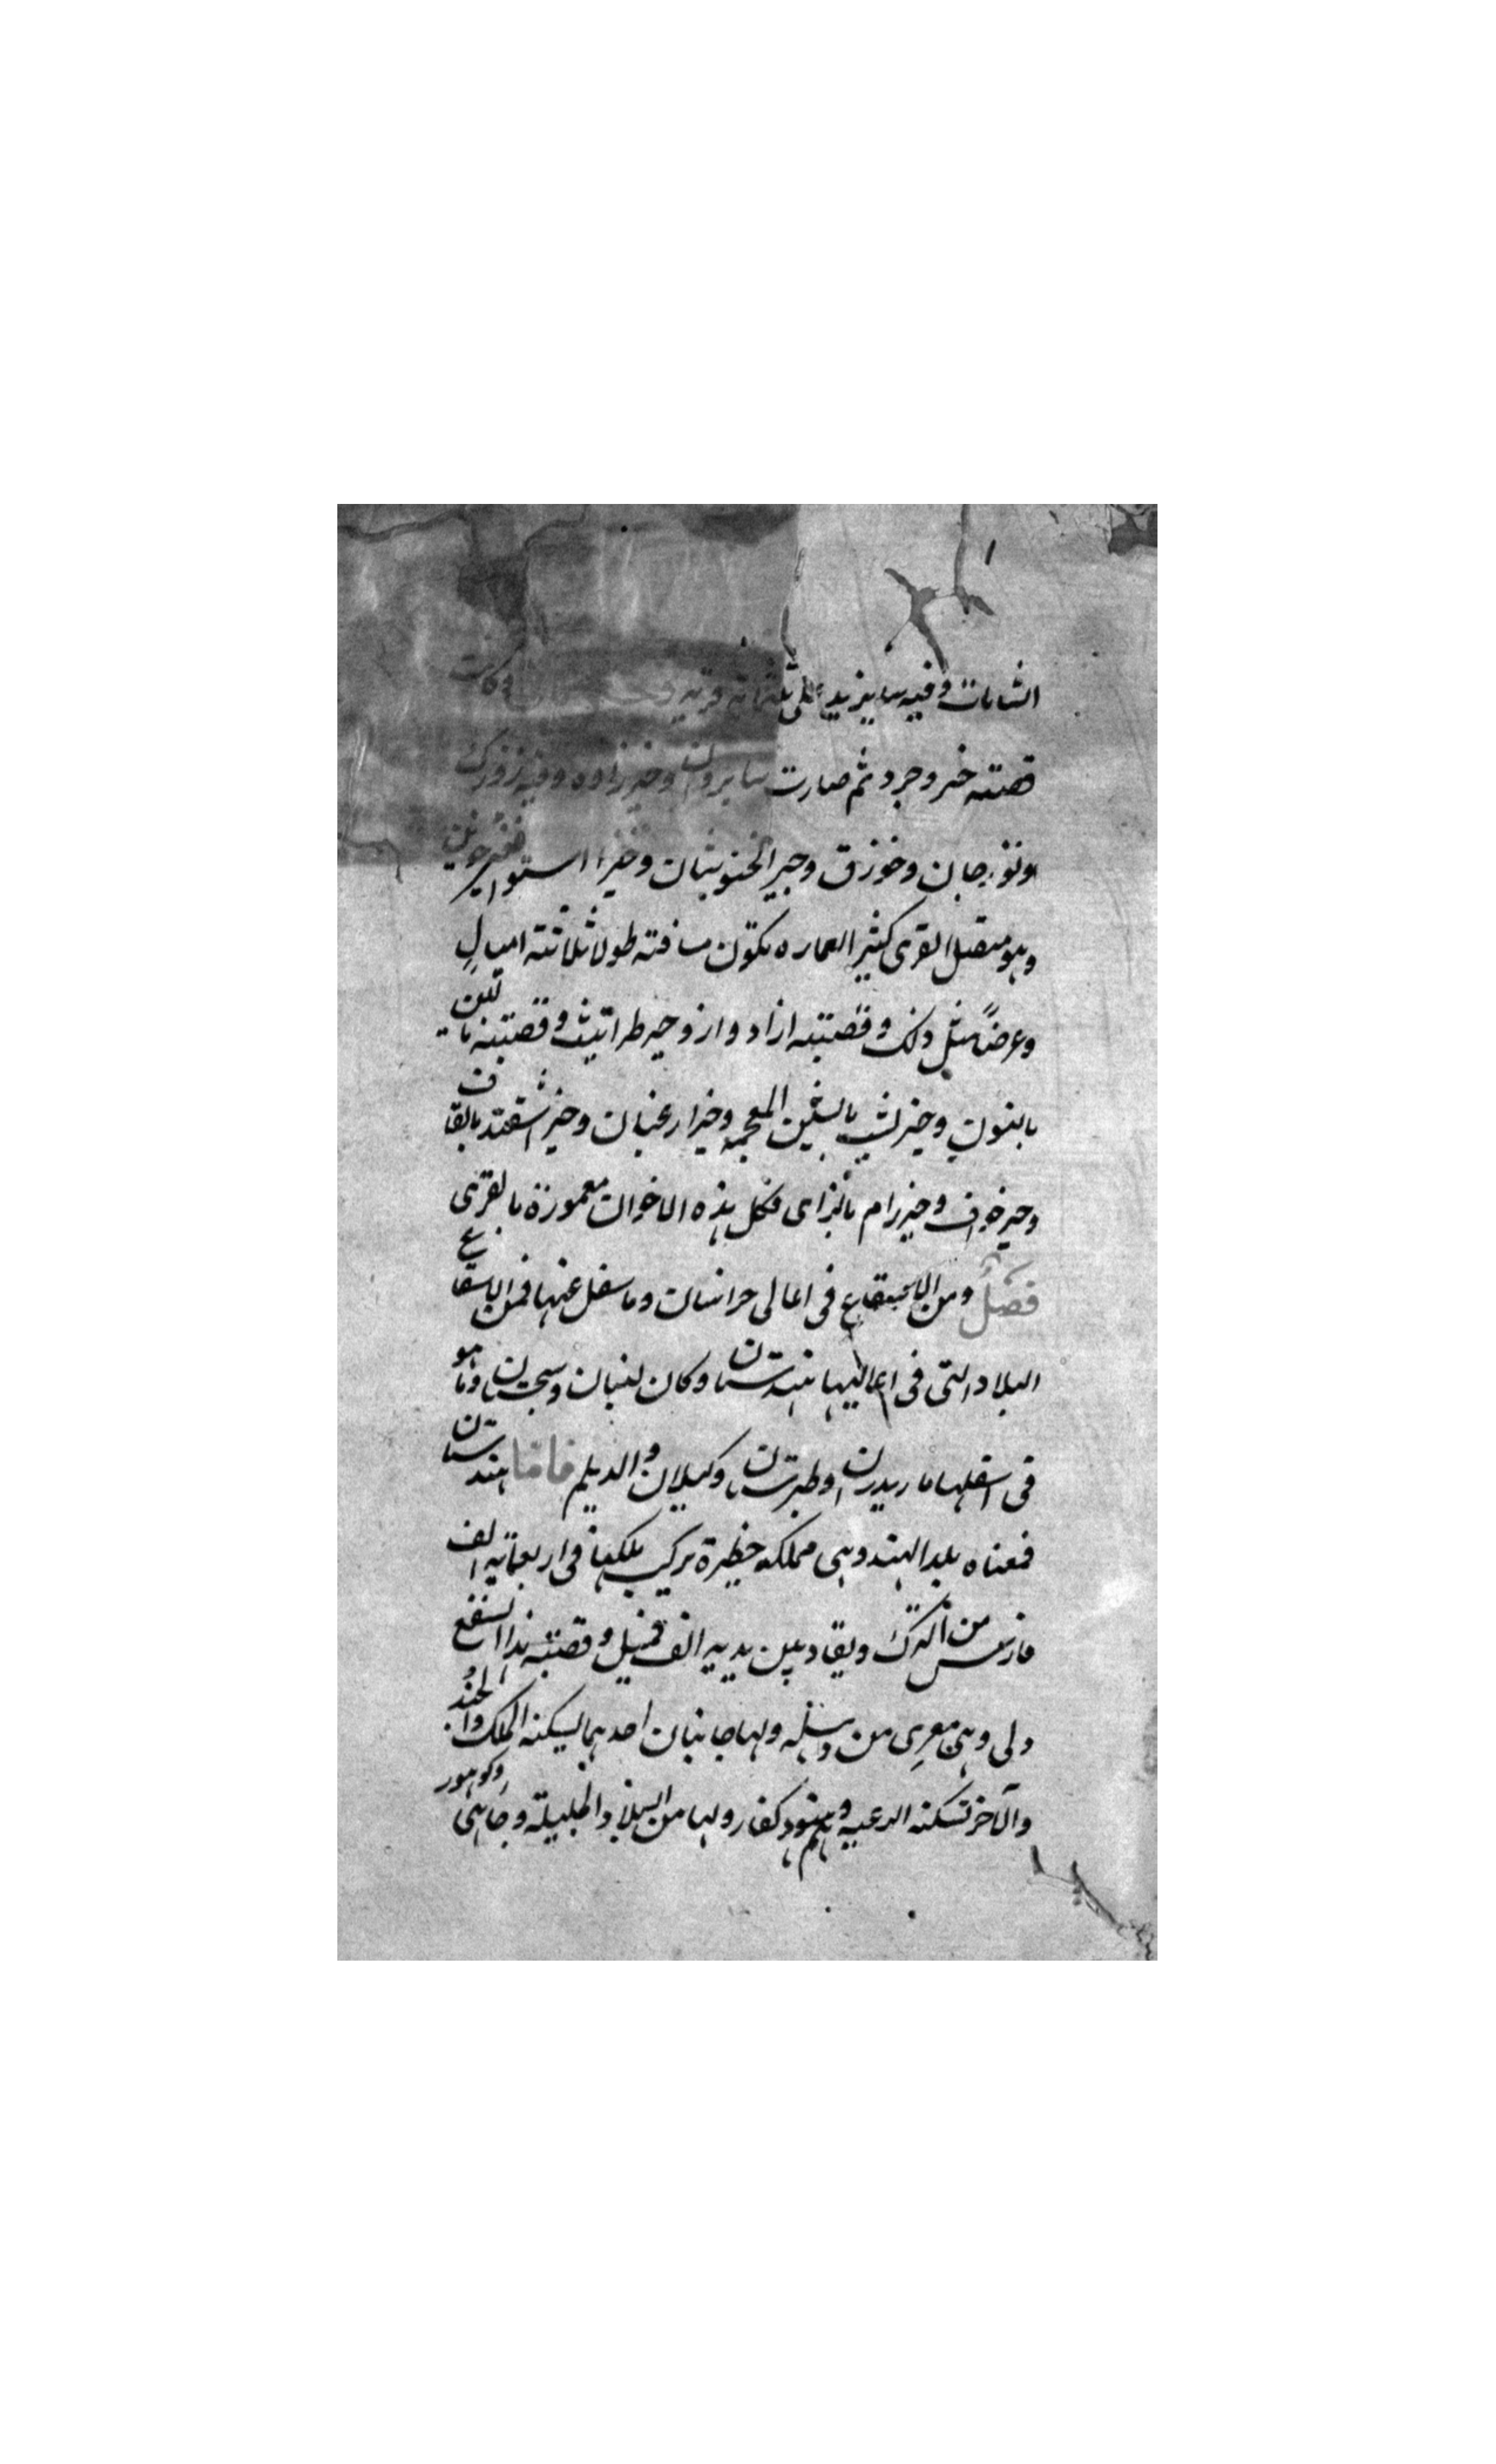 الشامات وفيه ما يزيد على ثلثمائة قرية وكانت
قصبته خسروجرد ثم صارت سابزوان وحيز زاوه وفيه زورك
ونوزجان وخوزق وحيز الخنوبتان وحيز استوا فحيز جوين
وهو متصل القرى كثير العماره تكون مسافته طولا ثلاثة اميال
وعرضاً مثل ذلك وقصبته ازاد وار وحيز طراثيث وقصبته
بالنون وحيز بشت بالشين المعجمه وحيز ارغيان وحيز اشقند بالقاف
وحيز خواف وحيز زام بالزاى فكل هذه الاخوات معمورة بالقرى
فصل ومن الاصقاع فى اعالى خراسان وما سفل عنها فمن الاسقاع
البلاد التى فى اعاليها هندستان وكان لنبان وسجستان وما هو
فى اسفلها ماريدران وطبرستان وكيلان والديلم فاما هندستان
فمعناه بلد الهند وهى مملكه خطيرة يركب ملكها فى اربعمائة الف
فارس من الترك ويقاد بين يديه الف فيل وقصبة هذا السقع
دلى وهى معرى من دهله ولها جانبان احدهما يسكنه الملك والجند
والآخر تسكنه الرعيه وهم هنود كفار ولها من البلاد الجليلة وجاهى وكوهور